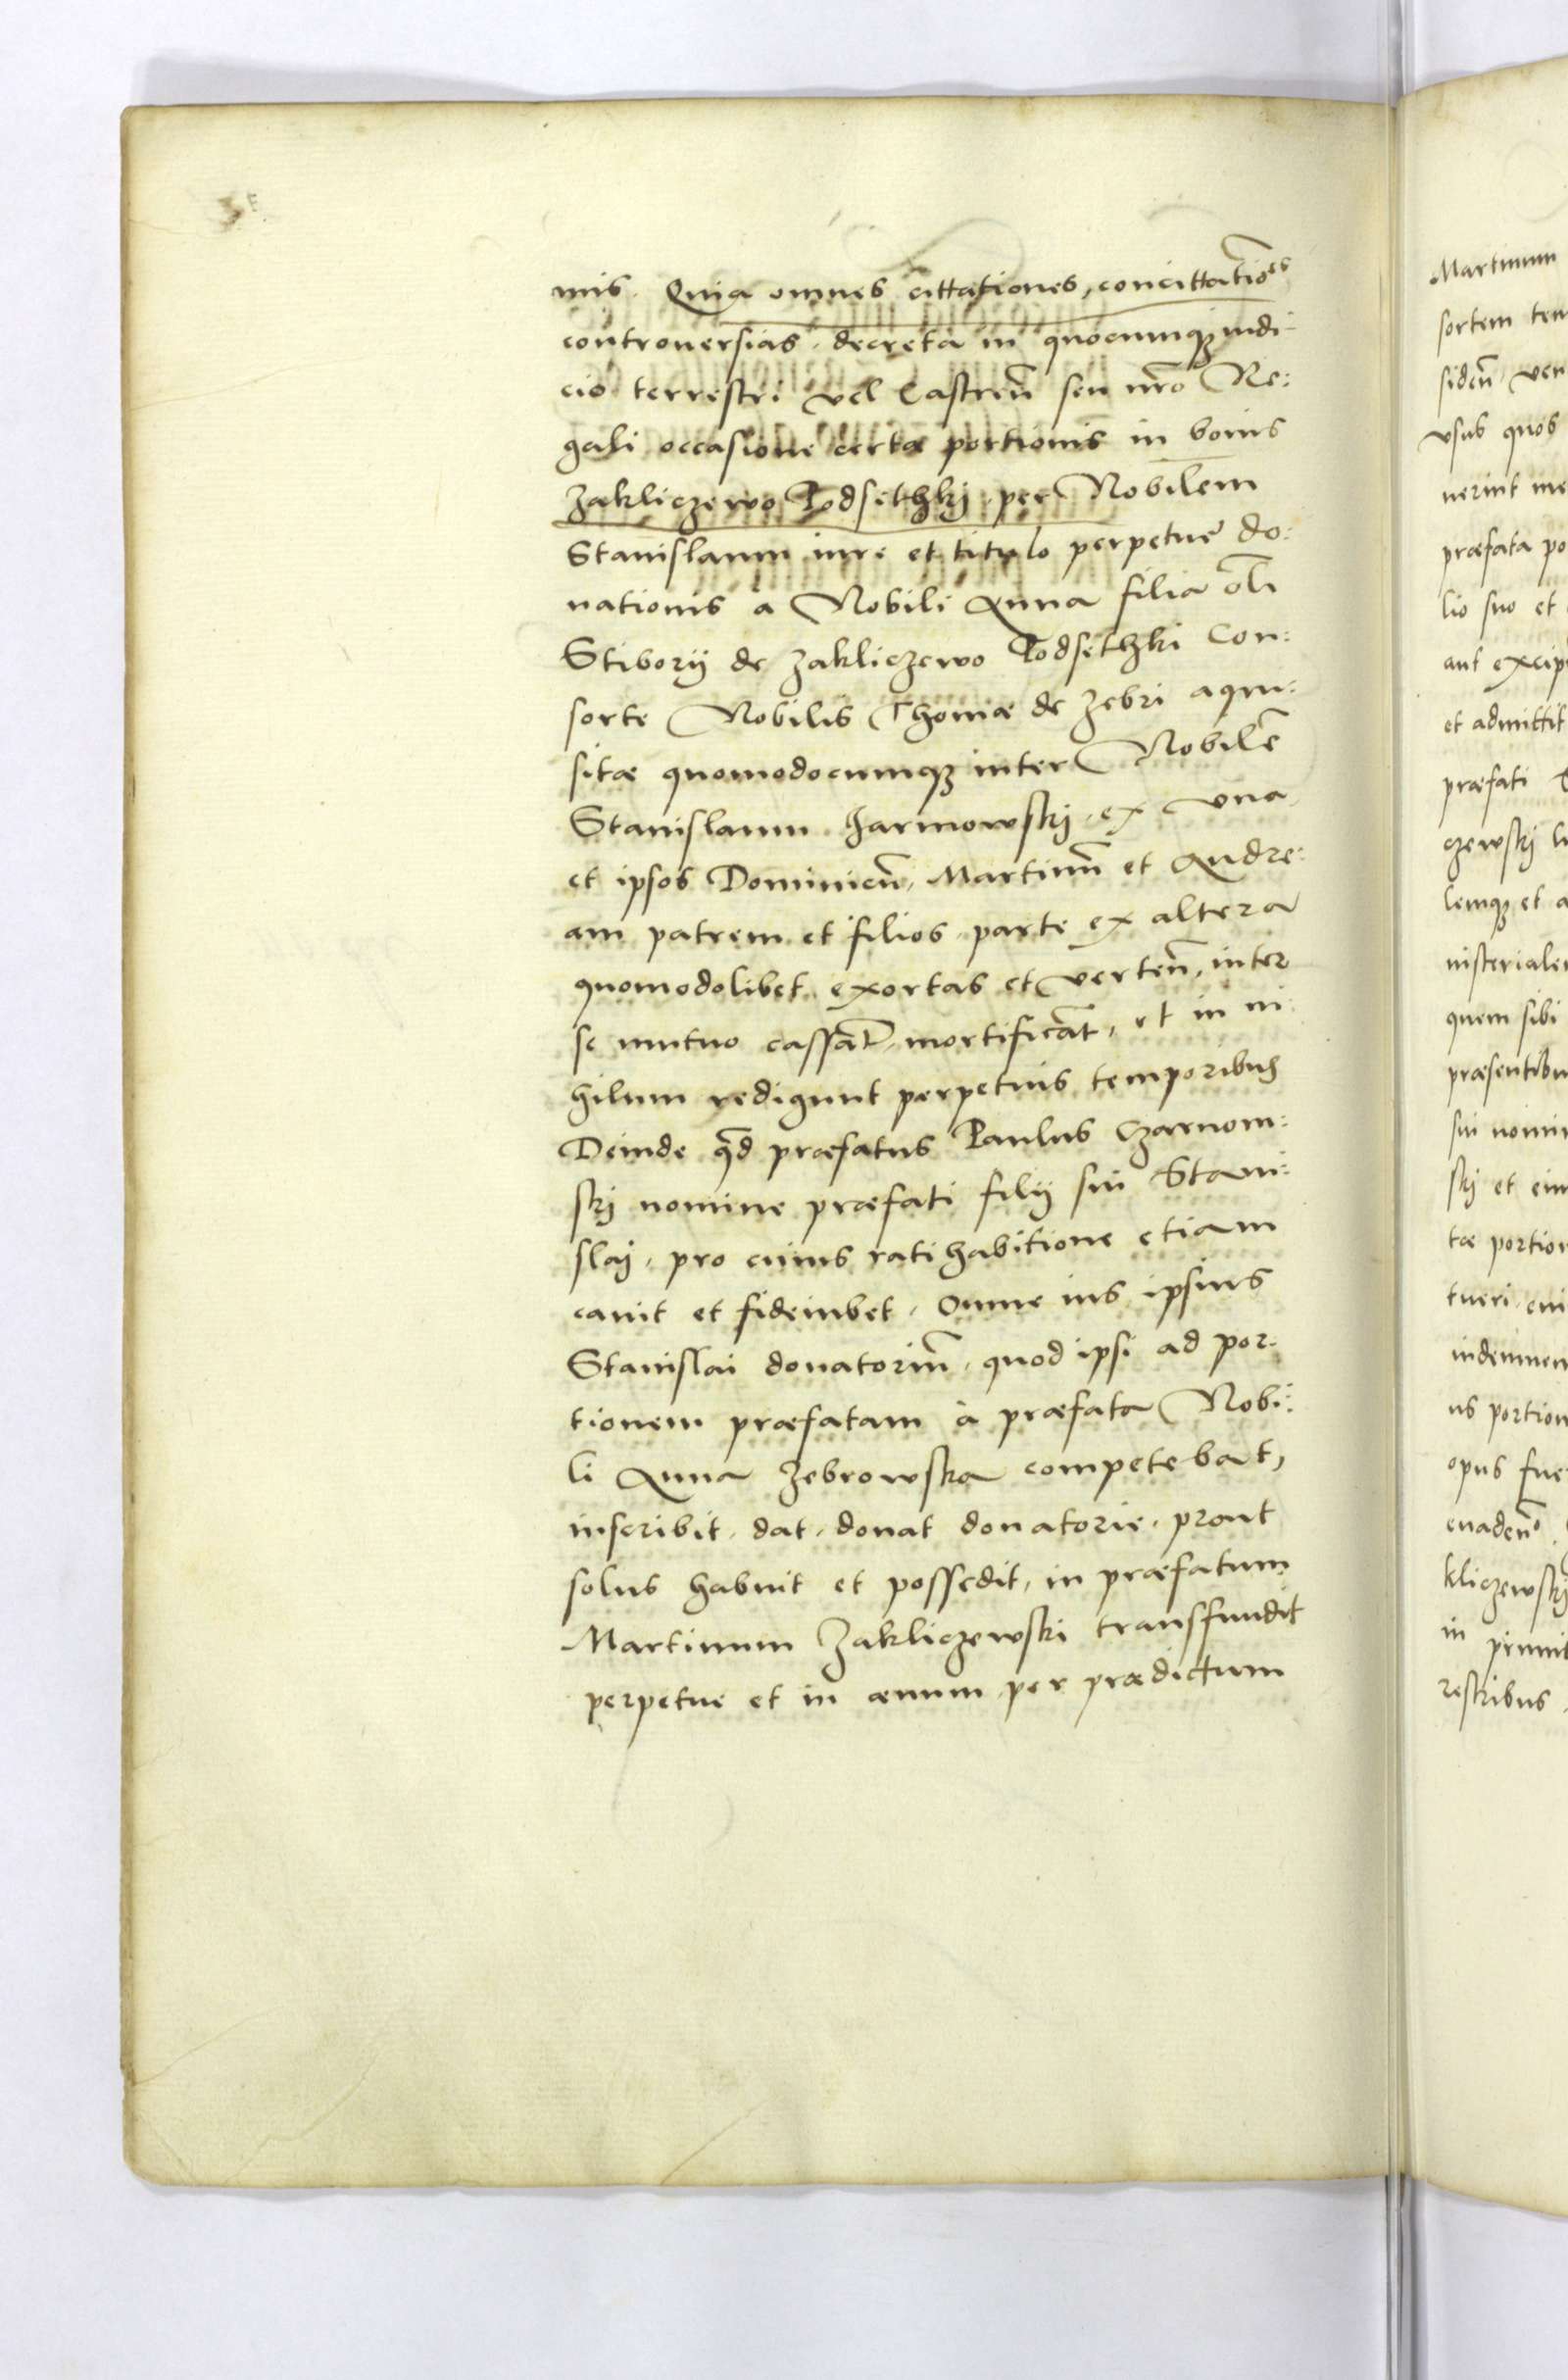 mis. Quia omnes cittationes, concittatio͠es
controuersias, decreta in quocumqȝ iudi-
cio terrestri vel Castren̄ seu nr̄o Re:
gali occasione certæ portionis in bonis
Zakliczewo Podsethzkj per Nobilem
Stanislaum iure et titulo perpetuę do:
nationis a Nobili Anna filia ol̄i
Stiborij de Zakliczewo Podsethzki Con:
sorte Nobilis Thomæ de Zebri aqui:
sitæ quomodocumqȝ inter Nobilē
Stanislaum Czarnowskj, ex vna
et ipsos Dominicū, Martinū et Andre:
am patrem et filios parte ex altera
quomodolibet exortas et verten̄, inter
se mutuo cassāt, mortificāt, et in ni-
hilum redigunt perpetuis temporibus
Deinde qd̄ præfatus Paulus Czarnow:
skj nomine præfati filij sui Stani:
slaj, pro cuius ratihabitione etiam
cauit et fideiubet, Omne ius ipsius
Stanislai donatoriū, quod ipsi ad por-
tionem præfatam à præfata Nobi:
li Anna Zebrowska competebat,
inscribit, dat, donat donatorie, prout
solus habuit et possedit, in præfatum
Martinum Zakliczewski transfundit
perpetue et in æuum per prædictum
Martinum
sortem ten
siden̄ ven
vsus quos
uerint me
præfata po
lio suo et
aut excip
et admittit
præfati
czewskj
lemqȝ et a
nisteriale
quem sibi
præsentibu
sui nomin
skj et eiu
tæ portion
tueri
indemnem
us portion
opus fue
euaden̄
kliczewskj
in
restribus